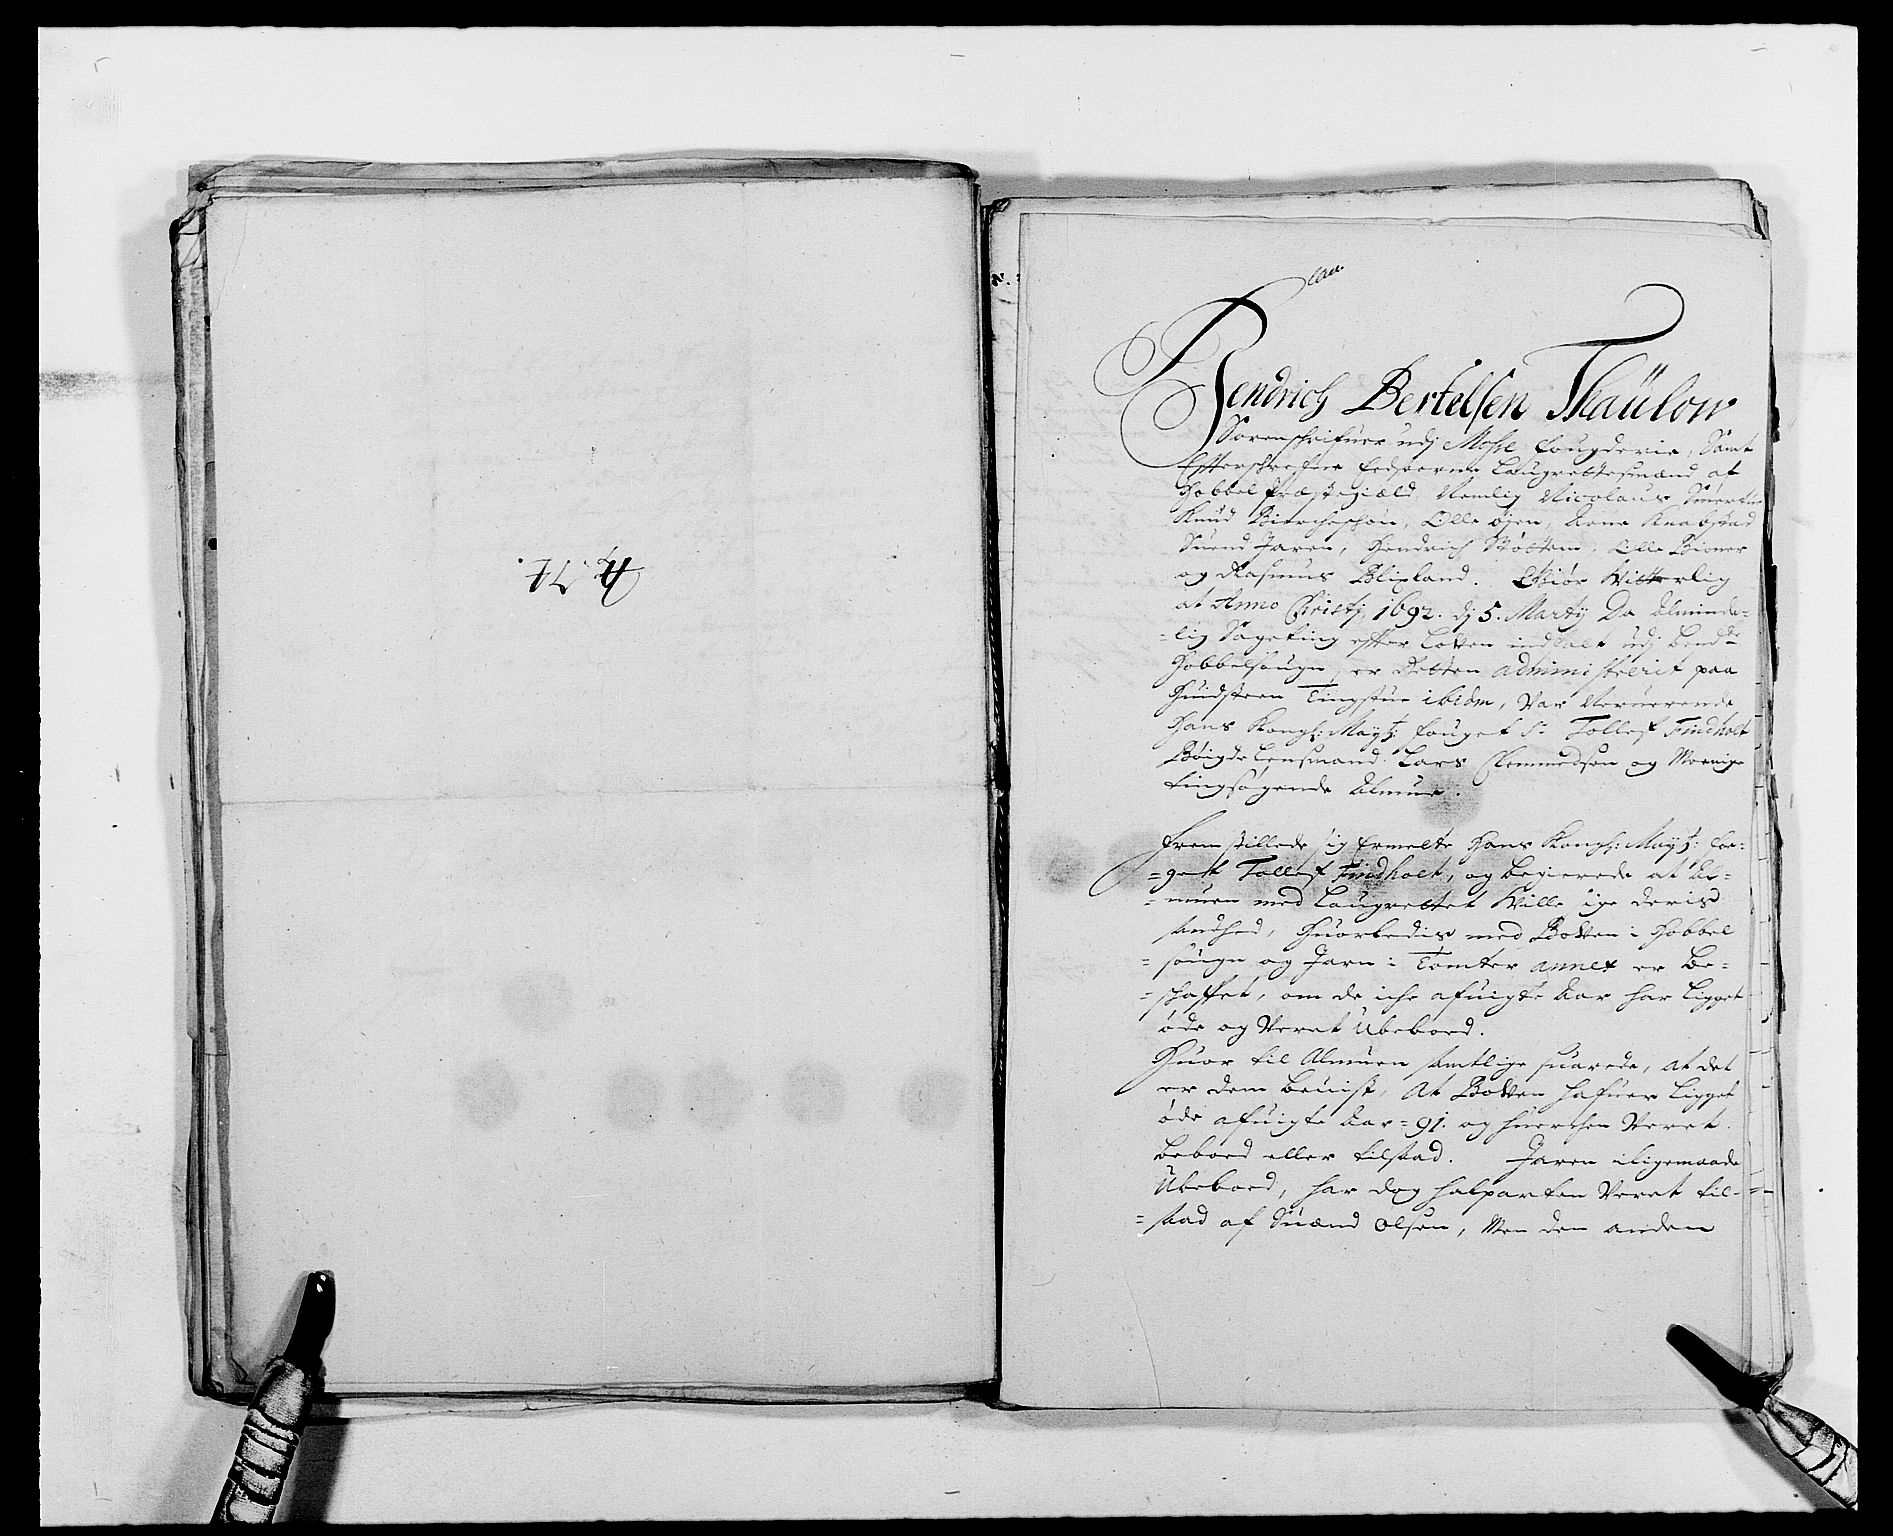 N. 74.
Hendrich Bertelsen Thaulow
Sorenschrifuer udj Mosse fougderie, Samt
Effterschrefne Eedsoerne Laugrettesmænd af
Hobbel Præstegiæld, Nemlig Nicolaus
Knud Biercheschou, Olle øjen, Arne Knabstad
Suend Jaren, Hendrich Støttem, Olle Bioner
og Rasmus Blixland. Giør Witterlig
at Anno Christj, 1692. dj 5. Martij Da Alminde-
-lig Sageting effter Loven indfalt udj bemte
Hobbelsougn, er Retten administrerit paa
Huidsteen Tingstue ibidm, Var Neruerende
Hans Kongl: Mayts: fouget Sr Tollef Findholt
Bøigde Lensmand Lars Clemmedsen og Meenige
tingsøgende Almue.
Fremstillede sig Ermelte Hans Kongl: Mayts: fou-
-get Tollef Findholt, og begierede at Al-
-muen med Laugrettet Wille sige deris
sandhed, Huorledis med Botten i Hobbel
-sougn og Jarn i Tomter annex er be-
-schaffet, om de iche afuigte Aar har Ligget
øde og Veret Ubeboed.
Huor til Almuen samtlige suarede, at det
er dem beuist, At Botten hafuer Ligget
øde afuigte Aar = 91. og huerchen Veret
beboed eller tilsaad. Jaren iligemaade
Ubeboed, har dog halparten Veret til-
-saad af Suænd Olsen, Men den anden